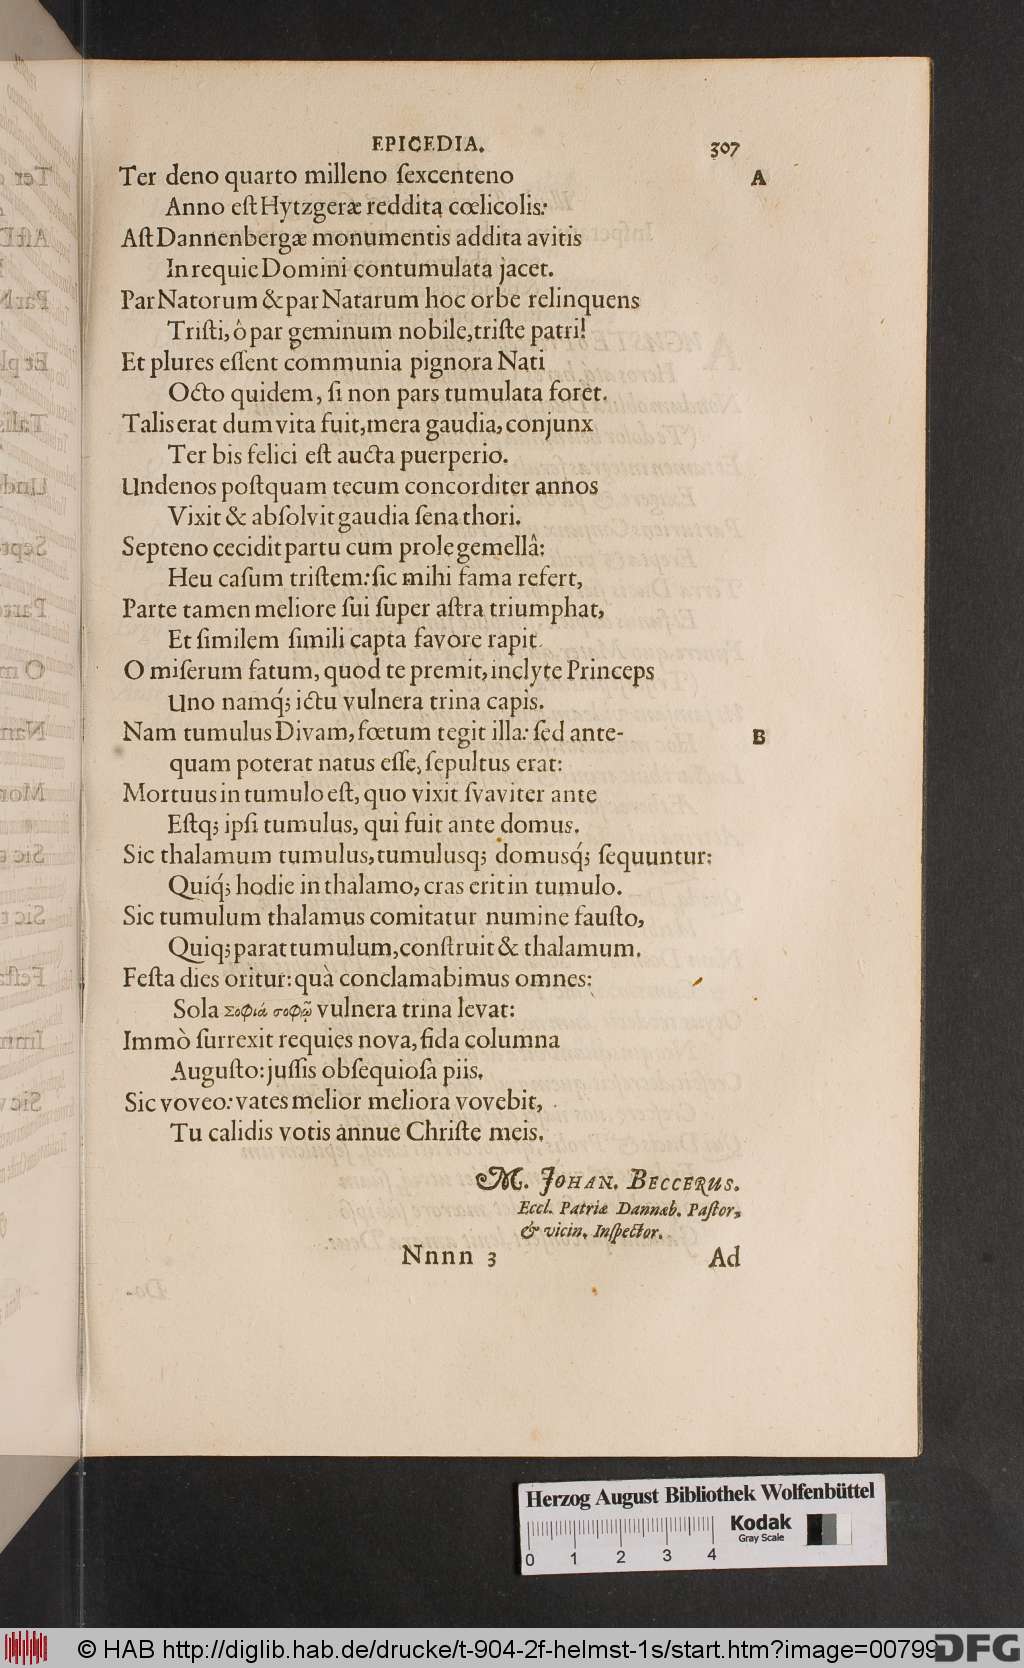 EPICEDIA. 307
Ter deno quarto milleno ſexcenteno A
Anno eſt Hytzgeræ reddita cœlicolis:
Aſt Dannenbergæ monumentis addita avitis
In requie Domini contumulata jacet.
Par Natorum & par Natarum hoc orbe relinquens
Triſti, ô par geminum nobile, triſte patri!
Et plures eſſent communia pignora Nati
Octo quidem, ſi non pars tumulata foret.
Talis erat dum vita fuit, mera gaudia, conjunx
Ter bis felici eſt aucta puerperio.
Undenos poſtquam tecum concorditer annos
Vixit & abſolvit gaudia ſena thori.
Septeno cecidit partu cum prole gemellâ:
Heu caſum triſtem: ſic mihi fama refert,
Parte tamen meliore ſui ſuper aſtra triumphat,
Et ſimilem ſimili capta favore rapit.
O miſerum fatum, quod te premit, inclyte Princeps
Uno namq́; ictu vulnera trina capis.
Nam tumulus Divam, fœtum tegit illa: ſed ante- B
quam poterat natus eſſe, ſepultus erat:
Mortuus in tumulo eſt, quo vixit ſvaviter ante
Eſtq; ipſi tumulus, qui fuit ante domus.
Sic thalamum tumulus, tumulusq; domusq́; ſequuntur:
Quiq́; hodie in thalamo, cras erit in tumulo.
Sic tumulum thalamus comitatur numine fauſto,
Quiq; parat tumulum, conſtruit & thalamum.
Feſta dies oritur: quà conclamabimus omnes:
Sola Σοφιά σοφῷ vulnera trina levat:
Immò ſurrexit requies nova, fida columna
Auguſto: juſſis obſequioſa piis.
Sic voveo: vates melior meliora vovebit,
Tu calidis votis annue Chriſte meis.
M. JOHAN. BECCERUS.
Eccl. Patriæ Dannæb. Paſtor,
& vicin. Inſpector.
Nnnn 3 Ad
Herzog August Bibliothek Wolfenbüttel
Kodak
Gray Scale
0 1 2 3 4
© HAB http://diglib.hab.de/drucke/t-904-2f-helmst-1s/start.htm?image=00799
DFG